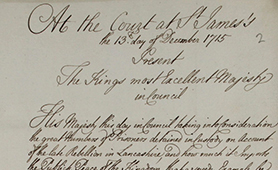 At the Court at St James's
the 13th day of December 1715
2
Present
The Kings most Excellent Majesty
in Council
His Majesty this day in Council taking into Consideration
the great Number of Prisoners detained in Custody on Account
of the late Rebellion in Lancashire and how much it Imports
the Publick Peace of the Kingdom